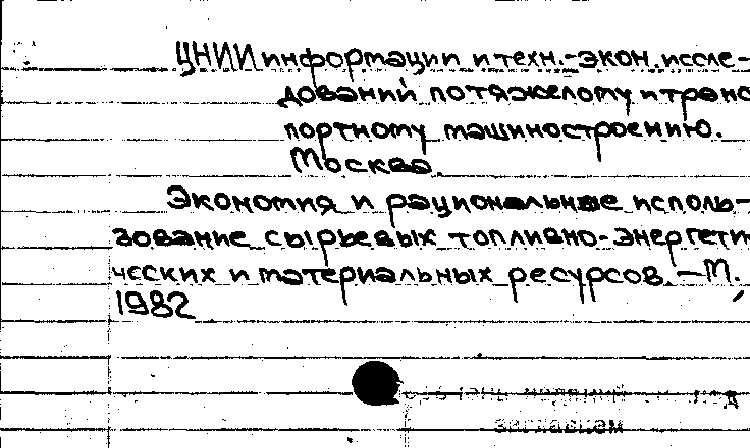 ЦНИИ информации и техн.-экон. иссле-
дований по тяжелому и транс
портному машиностроению.
Москва.
Экономия и рациональное исполь-
зование сырьевых топливно-энергети
ческих и материальных ресурсов. – М.,
1982
под
заглавием